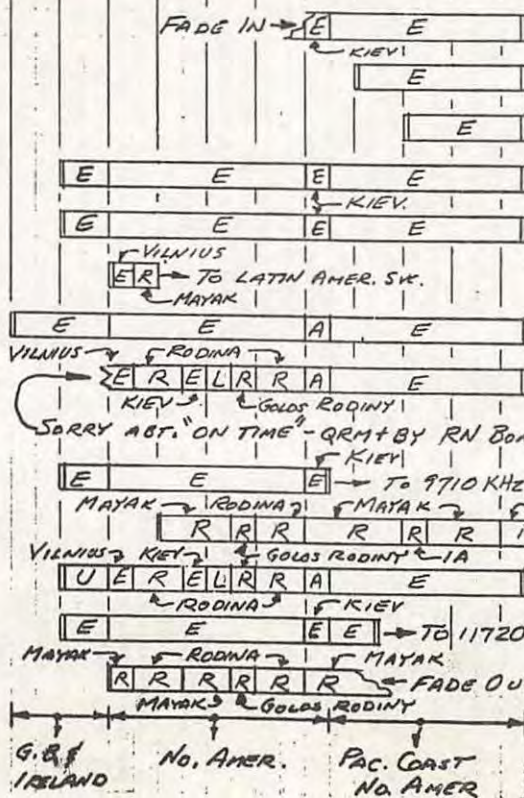 FADE IN → E E
KIEV
E
E
E E E E
KIEV.
E E E E
VILNIUS
E R → TO LATIN AMER. SVC.
MAYAK
E E A E
VILNIUS RODINA
E R E L R R A E
KIEV GOLOS RODINY
SORRY ABT. "ON TIME" - QRM+ BY RN BON
KIEV
E E E → TO 9710 KHZ
MAYAK RODINA MAYAK
R R R R R R
VILNIUS KIEV GOLOS RODINY IA
U E R E L R R A E
RODINA KIEV
E E E E → TO 11720
MAYAK RODINA MAYAK
R R R R R R FADE OU
MAYAK GOLOS RODINY
G.B. & IRELAND
NO. AMER.
PAC. COAST NO. AMER